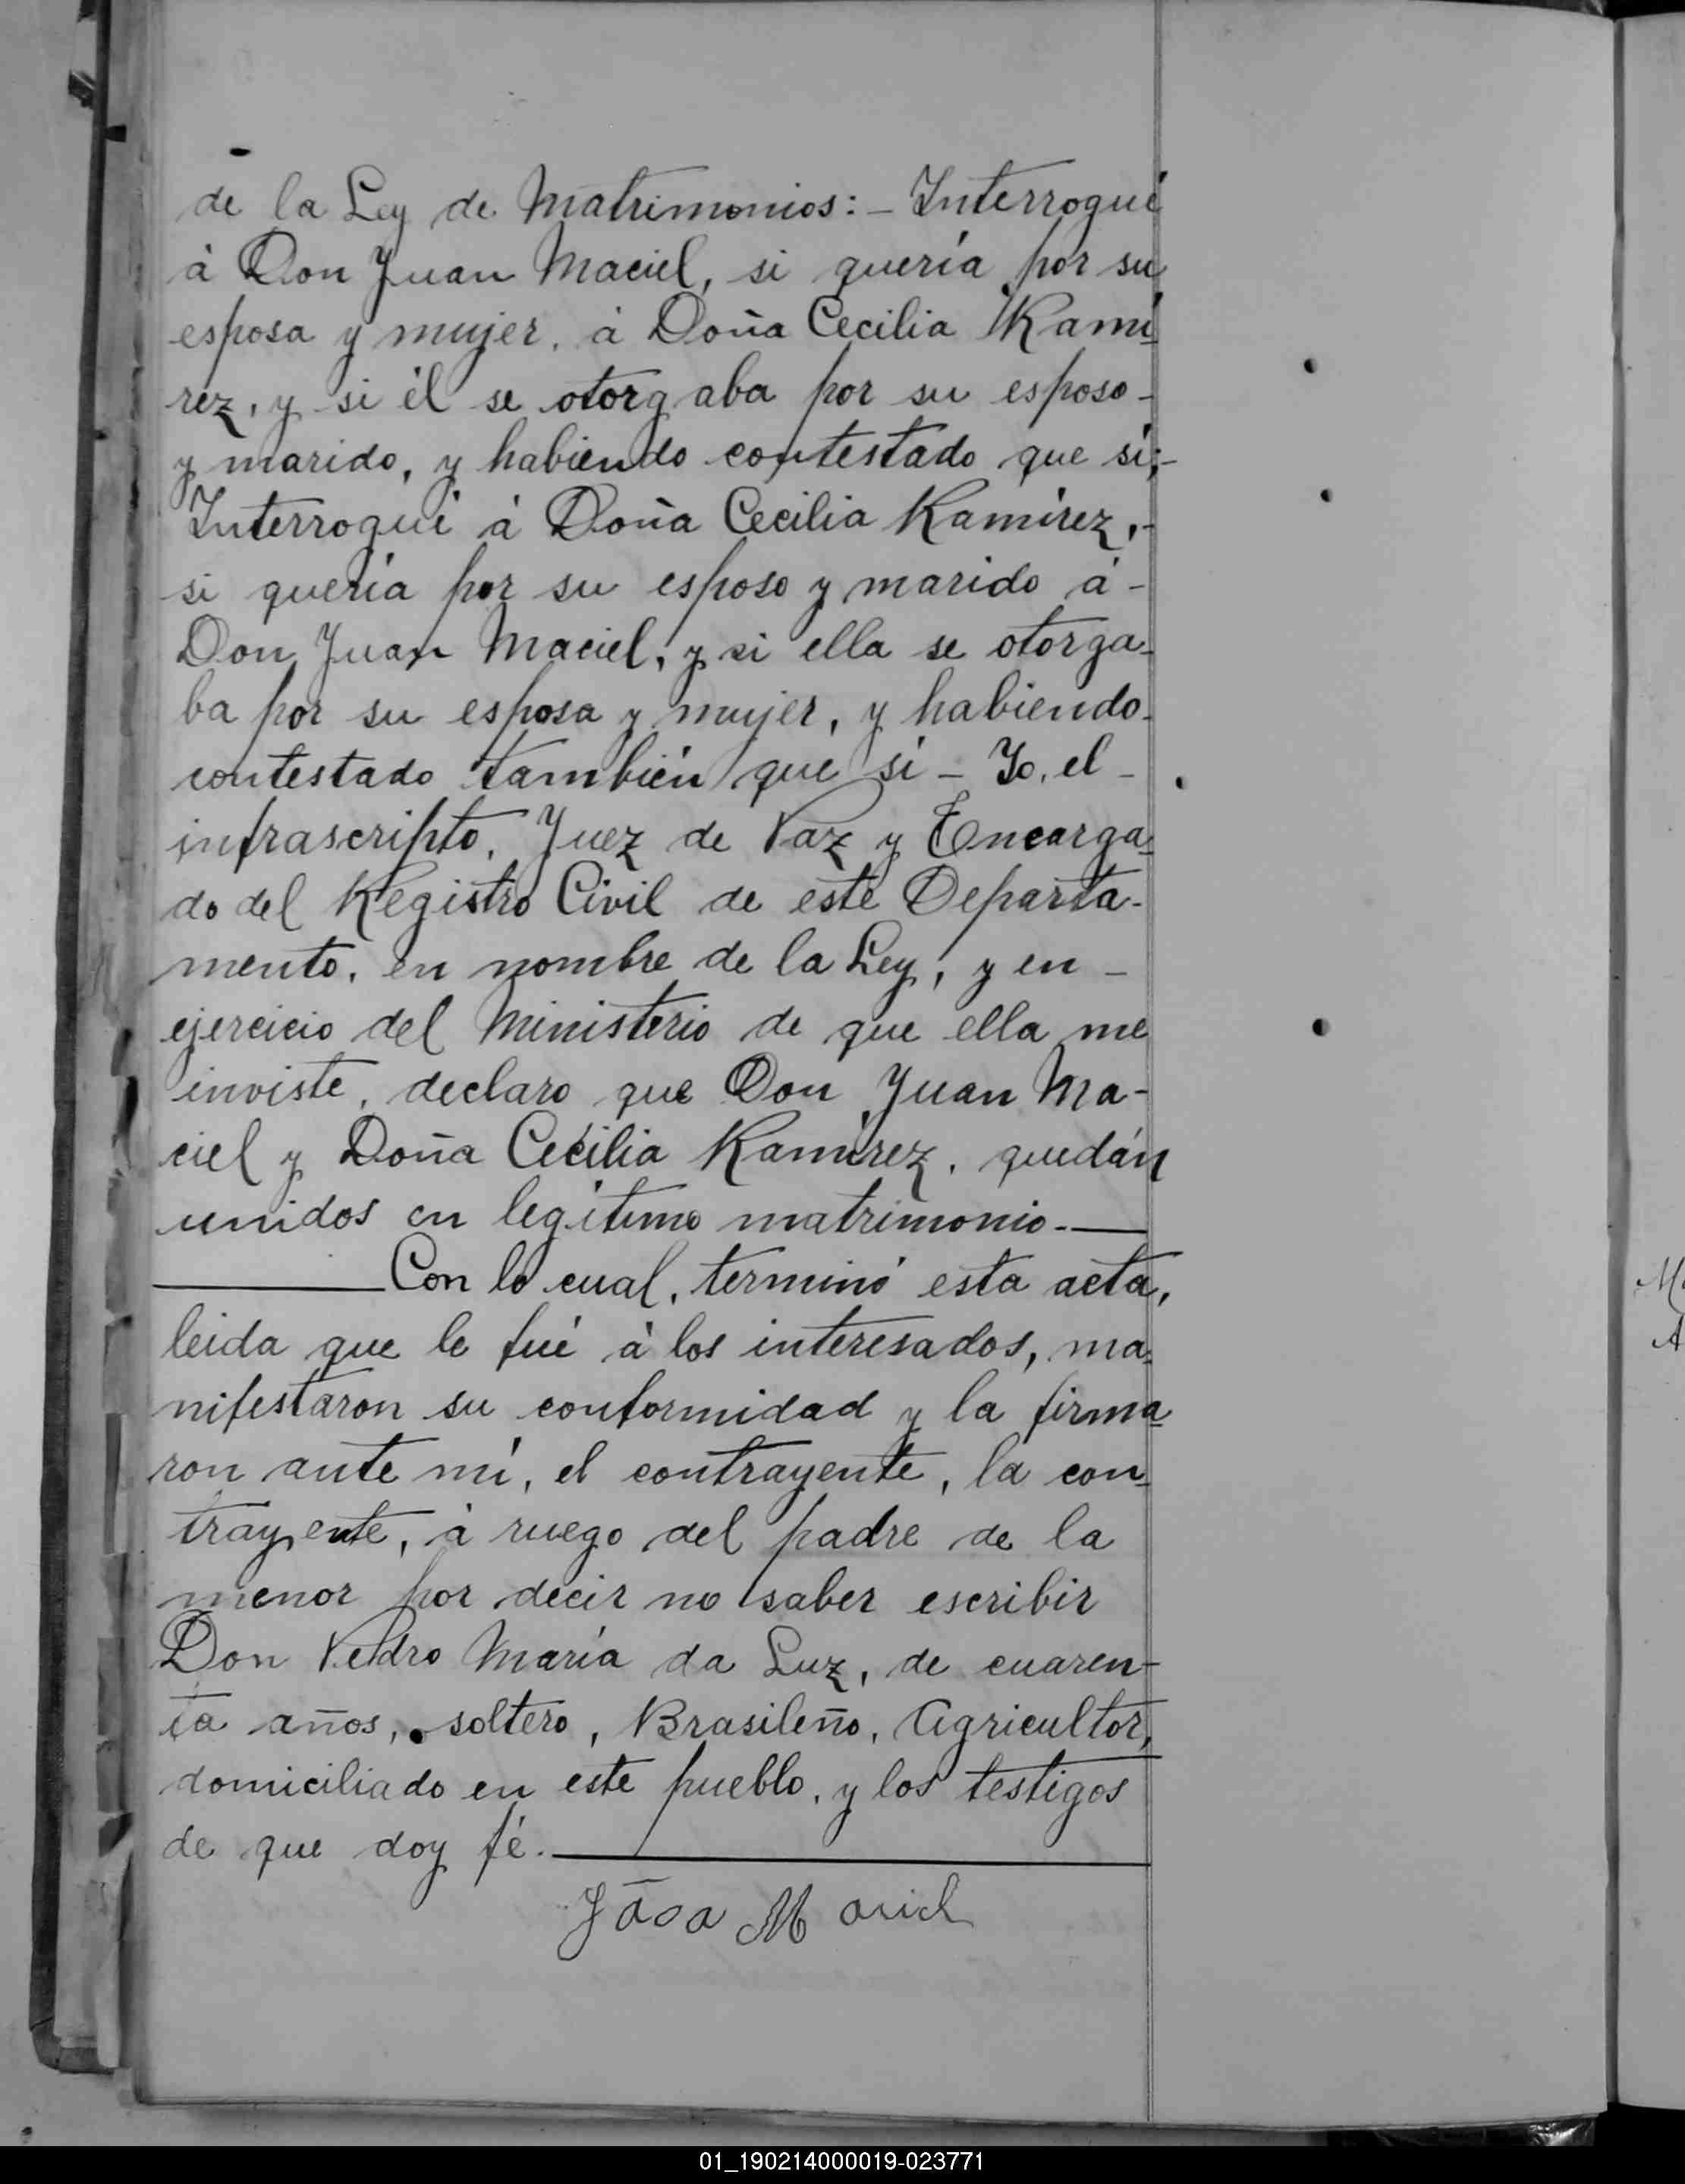 de la Ley de Matrimonios: – Interrogué
á Don Juan Maciel, si quería por su
esposa y mujer, á Doña Cecilia Rami
rez, y si él se otorgaba por su esposo –
y marido, y habiendo contestado que sí; –
Interrogué á Doña Cecilia Ramírez, –
si quería por su esposo y marido á –
Don Juan Maciel, y si ella se otorga-
ba por su esposa y mujer, y habiendo –
contestado también que sí – Yo, el –
infrascripto, Juez de Paz y Encarga-
do del Registro Civil de este Departa-
mento, en nombre de la Ley, y en –
ejercicio del Ministerio de que ella me
inviste, declaro que Don Juan Ma-
ciel y Doña Cecilia Ramírez, quedán
unidos en legítimo matrimonio. –
Con lo cual, terminó esta acta,
leida que le fué á los interesados, ma-
nifestaron su conformidad y la firma-
ron ante mí, el contrayente, la con-
trayente, á ruego del padre de la
menor por decir no saber escribir
Don Pedro María da Luz, de cuaren-
ta años, soltero, Brasileño, Agricultor,
domiciliado en este pueblo, y los testigos
de que doy fé.
01_190214000019-023771